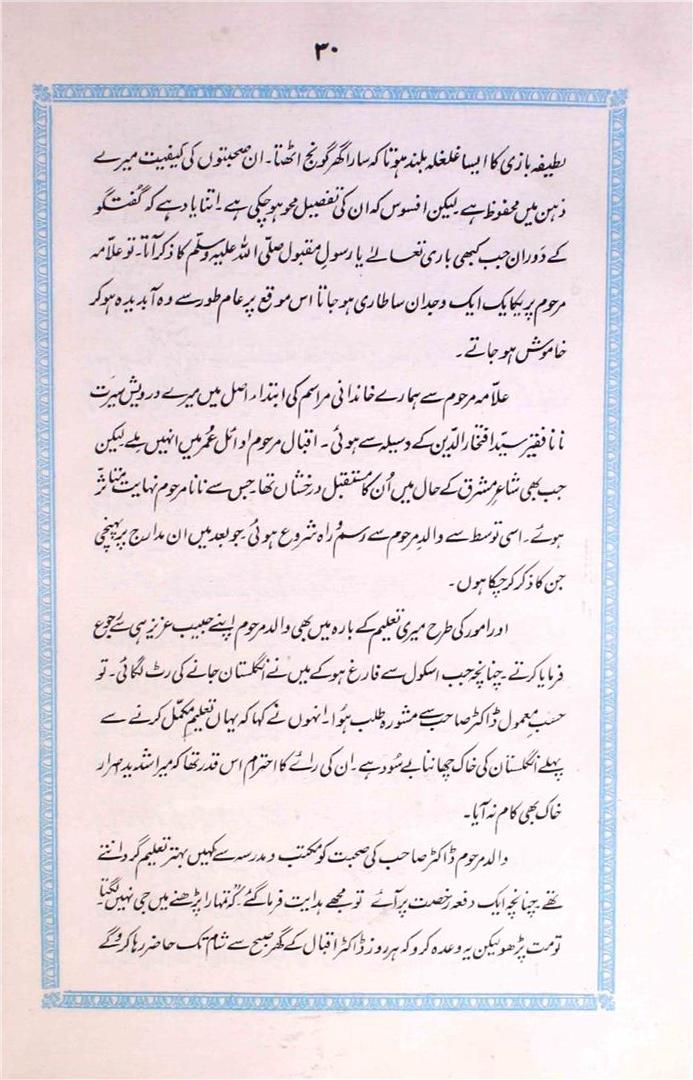 ۳۰
لطیفہ بازی کا ایسا غلغلہ بلند ہوتا کہ سارا گھر گونج اٹھتا۔ ان صحبتوں کی کیفیت میرے
ذہن میں محفوظ ہے۔ لیکن افسوس کہ ان کی تفصیل محو ہو چکی ہے۔ اتنا یاد ہے کہ گفتگو
کے دَوران جب کبھی باری تعالےٰ یا رسولِ مقبول صلّی اللہ علیہ وسلّم کا ذکر آتا۔ تو علاّمہ
مرحوم پر یکایک ایک وجدان سا طاری ہو جاتا اس موقع پر عام طور سے وہ آبدیدہ ہو کر
خاموش ہو جاتے۔
علاّمہ مرحوم سے ہمارے خاندانی مراسم کی ابتداء اصل میں میرے درویش سیرت
نانا فقیر سیّد افتخار الدّین کے وسیلہ سے ہوئی۔ اقبال مرحوم اوائل عُمر میں انہیں ملے لیکن
جب بھی شاعرِ مشرق کے حال میں اُن کا مستقبل درخشاں تھا۔ جس سے نانا مرحوم نہایت متاثّر
ہوئے۔ اسی توسط سے والدِ مرحوم سے رسم و راہ شروع ہوئی۔ جو بعد میں ان مدارج پر پہنچی
جن کا ذکر کر چکا ہوں۔
اور امور کی طرح میری تعلیم کے بارہ میں بھی والد مرحوم اپنے حبیب عزیز ہی سے رجوع
فرمایا کرتے۔ چنانچہ جب اسکول سے فارغ ہو کے میں نے انگلستان جانے کی رٹ لگائی۔ تو
حسبِ معمول ڈاکٹر صاحب سے مشورہ طلب ہوُا۔ انہوں نے کہا کہ یہاں تعلیم مکمّل کرنے سے
پہلے انگلستان کی خاک چھاننا بے سُود ہے۔ ان کی رائے کا احترام اس قدر تھا کہ میرا شدید اصرار
خاک بھی کام نہ آیا۔
والد مرحوم ڈاکٹر صاحب کی صحبت کو مکتب و مدرسہ سے کہیں بہتر تعلیم گردانتے
تھے۔ چنانچہ ایک دفعہ رخصت پر آئے تو مجھے ہدایت فرما گئے۔ کہ "تمہارا پڑھنے میں جی نہیں لگتا۔
تو مت پڑھو لیکن یہ وعدہ کرو کہ ہر روز ڈاکٹر اقبال کے گھر صبح سے شام تک حاضر رہا کرو گے